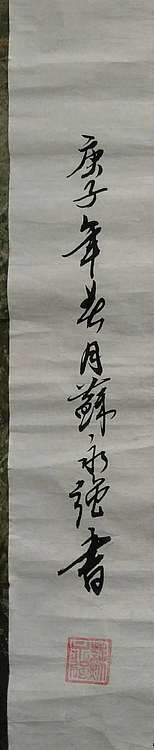 庚子年春月蘇永強書